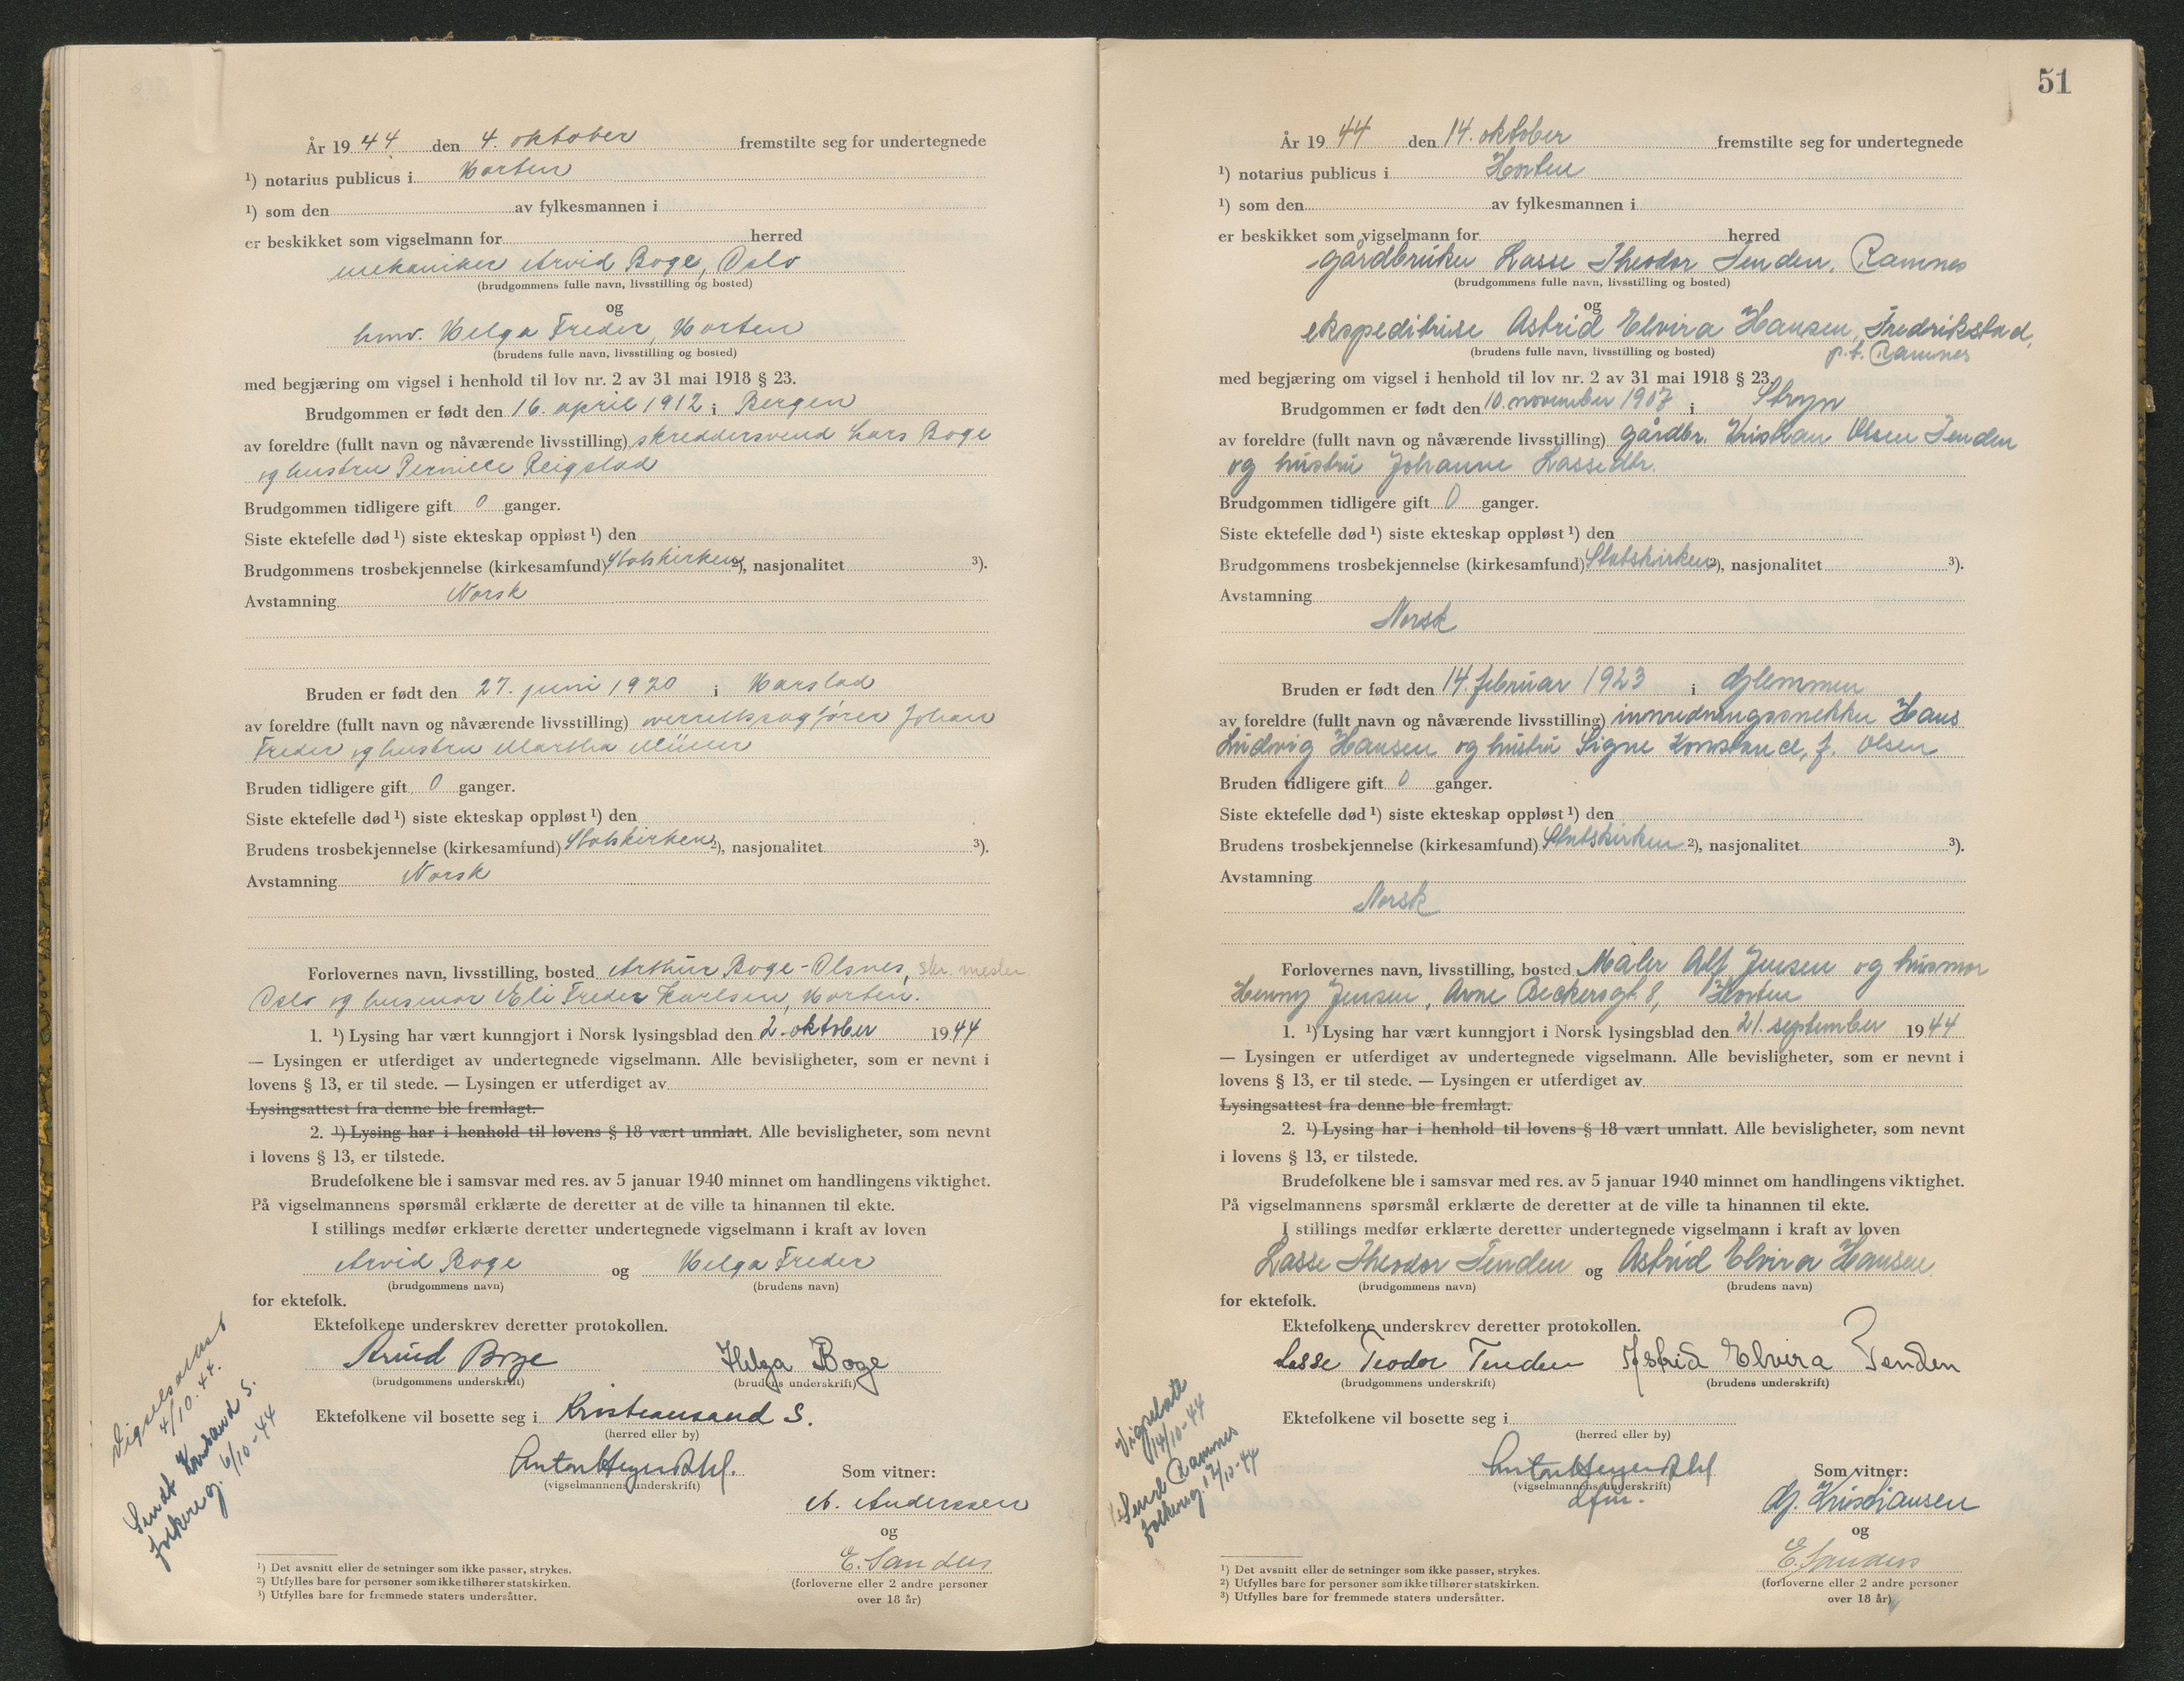 År 1944 den 4. oktober fremstilte seg for undertegnede
¹) notarius publicus i Horten
¹) som den av fylkesmannen i
er beskikket som vigselmann for herred
mekaniker Arvid Boge, Oslo
(brudgommens fulle navn, livsstilling og bosted)
og
hmv. Helga Freder, Horten
(brudens fulle navn, livsstilling og bosted)
med begjæring om vigsel i henhold til lov nr. 2 av 31 mai 1918 § 23.
Brudgommen er født den 16. april 1912 i Bergen
av foreldre (fullt navn og nåværende livsstilling) skreddersvend Lars Boge
og hustru Pernille Reigstad
Brudgommen tidligere gift 0 ganger.
Siste ektefelle død ¹) siste ekteskap oppløst ¹) den
Brudgommens trosbekjennelse (kirkesamfund) Statskirken ²), nasjonalitet ³).
Avstamning Norsk
Bruden er født den 27. juni 1920 i Harstad
av foreldre (fullt navn og nåværende livsstilling) overrettssagfører Johan
Freder og hustru Martha Müller
Bruden tidligere gift 0 ganger.
Siste ektefelle død ¹) siste ekteskap oppløst ¹) den
Brudens trosbekjennelse (kirkesamfund) Statskirken ²), nasjonalitet ³).
Avstamning Norsk
Forlovernes navn, livsstilling, bosted Arthur Boge-Olsnes, skr. mester
Oslo og husmor Eli Freder Karlsen, Horten.
1. ¹) Lysing har vært kunngjort i Norsk lysingsblad den 2. oktober 1944
— Lysingen er utferdiget av undertegnede vigselmann. Alle bevisligheter, som er nevnt i
lovens § 13, er til stede. — Lysingen er utferdiget av
Lysingsattest fra denne ble fremlagt.
2. ¹) Lysing har i henhold til lovens § 18 vært unnlatt. Alle bevisligheter, som nevnt
i lovens § 13, er tilstede.
Brudefolkene ble i samsvar med res. av 5 januar 1940 minnet om handlingens viktighet.
På vigselmannens spørsmål erklærte de deretter at de ville ta hinannen til ekte.
I stillings medfør erklærte deretter undertegnede vigselmann i kraft av loven
Arvid Boge og Helga Freder
(brudgommens navn) (brudens navn)
for ektefolk.
Ektefolkene underskrev deretter protokollen.
Arvid Boge Helga Boge
(brudgommens underskrift) (brudens underskrift)
Ektefolkene vil bosette seg i Kristiansand S.
(herred eller by)
Anton Heyerdahl.
(vigselmannens underskrift)
Som vitner:
A. Anderssen
og
E. Sanders
(forloverne eller 2 andre personer
over 18 år)
Vigselsattest
4/10. 44.
Sendt Kr.sand S.
folkereg. 6/10-44
¹) Det avsnitt eller de setninger som ikke passer, strykes.
²) Utfylles bare for personer som ikke tilhører statskirken.
³) Utfylles bare for fremmede staters undersåtter.
51
År 1944 den 14. oktober fremstilte seg for undertegnede
¹) notarius publicus i Horten
¹) som den av fylkesmannen i
er beskikket som vigselmann for herred
gårdbruker Lasse Theodor Tenden, Ramnes
(brudgommens fulle navn, livsstilling og bosted)
og
ekspeditrise Astrid Elvira Hansen, Fredrikstad,
(brudens fulle navn, livsstilling og bosted) p.t. Ramnes
med begjæring om vigsel i henhold til lov nr. 2 av 31 mai 1918 § 23.
Brudgommen er født den 10. november 1907 i Stryn
av foreldre (fullt navn og nåværende livsstilling) gårdbr. Kristian Olsen Tenden
og hustru Johanne Lassedtr.
Brudgommen tidligere gift 0 ganger.
Siste ektefelle død ¹) siste ekteskap oppløst ¹) den
Brudgommens trosbekjennelse (kirkesamfund) Statskirken ²), nasjonalitet ³).
Avstamning
Norsk
Bruden er født den 14. februar 1923 i Glemmen
av foreldre (fullt navn og nåværende livsstilling) innredningssnekker Hans
Ludvig Hansen og hustru Signe Konstance, f. Olsen
Bruden tidligere gift 0 ganger.
Siste ektefelle død ¹) siste ekteskap oppløst ¹) den
Brudens trosbekjennelse (kirkesamfund) Statskirken ²), nasjonalitet ³).
Avstamning
Norsk
Forlovernes navn, livsstilling, bosted Maler Alf Jensen og husmor
Henny Jensen, Arne Beckersgt. 8, Horten
1. ¹) Lysing har vært kunngjort i Norsk lysingsblad den 21. september 1944
— Lysingen er utferdiget av undertegnede vigselmann. Alle bevisligheter, som er nevnt i
lovens § 13, er til stede. — Lysingen er utferdiget av
Lysingsattest fra denne ble fremlagt.
2. ¹) Lysing har i henhold til lovens § 18 vært unnlatt. Alle bevisligheter, som nevnt
i lovens § 13, er tilstede.
Brudefolkene ble i samsvar med res. av 5 januar 1940 minnet om handlingens viktighet.
På vigselmannens spørsmål erklærte de deretter at de ville ta hinannen til ekte.
I stillings medfør erklærte deretter undertegnede vigselmann i kraft av loven
Lasse Theodor Tenden og Astrid Elvira Hansen
(brudgommens navn) (brudens navn)
for ektefolk.
Ektefolkene underskrev deretter protokollen.
Lasse Teodor Tenden Astrid Elvira Tenden
(brudgommens underskrift) (brudens underskrift)
Ektefolkene vil bosette seg i
(herred eller by)
Anton Heyerdahl
(vigselmannens underskrift)
Som vitner:
G. Kristiansen
og
E. Sanders
(forloverne eller 2 andre personer
over 18 år)
14/10-44
Send Ramnes
folkereg. 17/10-44
¹) Det avsnitt eller de setninger som ikke passer, strykes.
²) Utfylles bare for personer som ikke tilhører statskirken.
³) Utfylles bare for fremmede staters undersåtter.